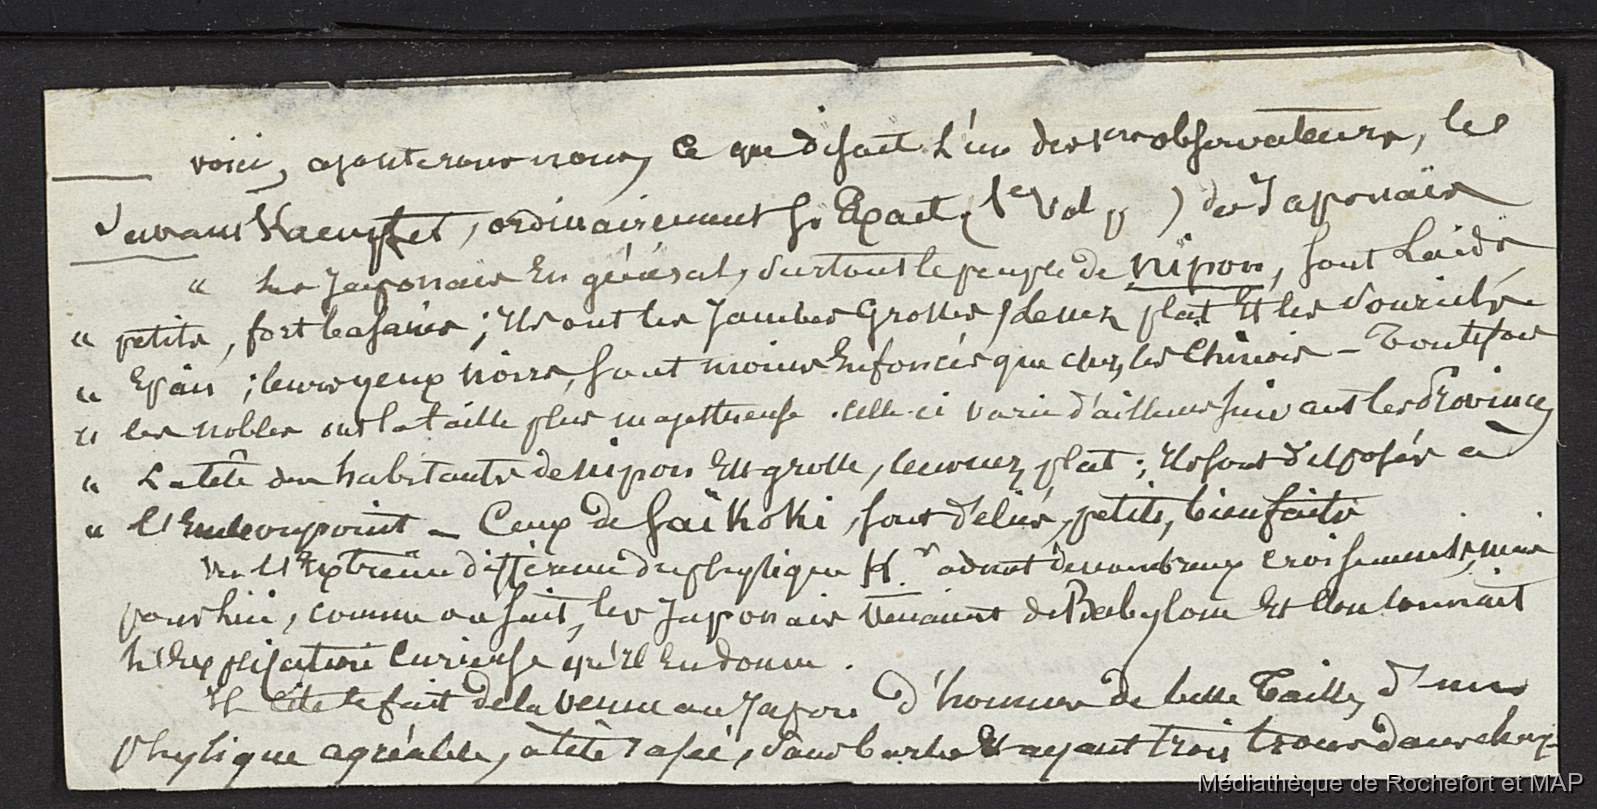 voici, ajouterons nous, ce que disait l'un des 1ers observateurs, le
savant Kaempfer, ordinairement si Exact, (1e Vol p ) des Japonais
" Les Japonais En général, surtout le peuple de Nipon, sont Laids
" petits, fort basanés ; Ils ont les Jambes Grosses, le nez plat Et les sourcils
" Epais ; leurs yeux noirs, sont moins Enfoncés que chez les Chinois - Toutefois
" les nobles ont la taille plus majestueuse. celle-ci varie d'ailleurs suivant les Provinces
" La tête des habitants de Nipon Est grosse, leur nez plat ; Ils sont disposés à
" l'Embonpoint - Ceux de Saïkoki, sont déliés, petits, bien faits
Vu l'Extrême différence du physique K.r admet de nombreux croisements, mais
pour lui, comme on sait, les Japonais venaient de Babylone Et l'on connait
l'Explication Curieuse qu'Il En donne.
Il Cite le fait de la venue au Japon d'hommes de belle Taille, d'un
Physique agréable, à tête rasée, sans barbe Et ayant trois trous dans chaq-
Médiathèque de Rochefort et MAP